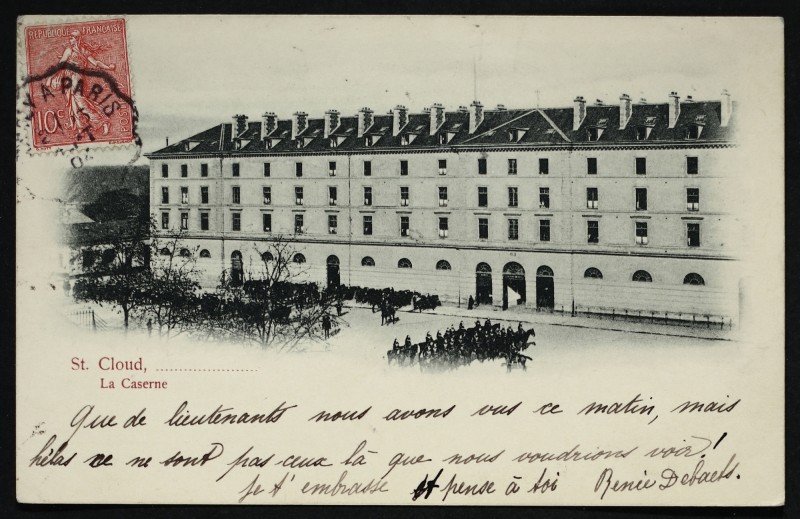 REPUBLIQUE FRANÇAISE
10c
POSTES
A PARIS
04
St. Cloud, ......................
La Caserne
Que de lieutenants nous avons vus ce matin, mais
hélas ce ne sont pas ceux là que nous voudrions voir!
je t'embrasse et pense à toi Renée Debaets.